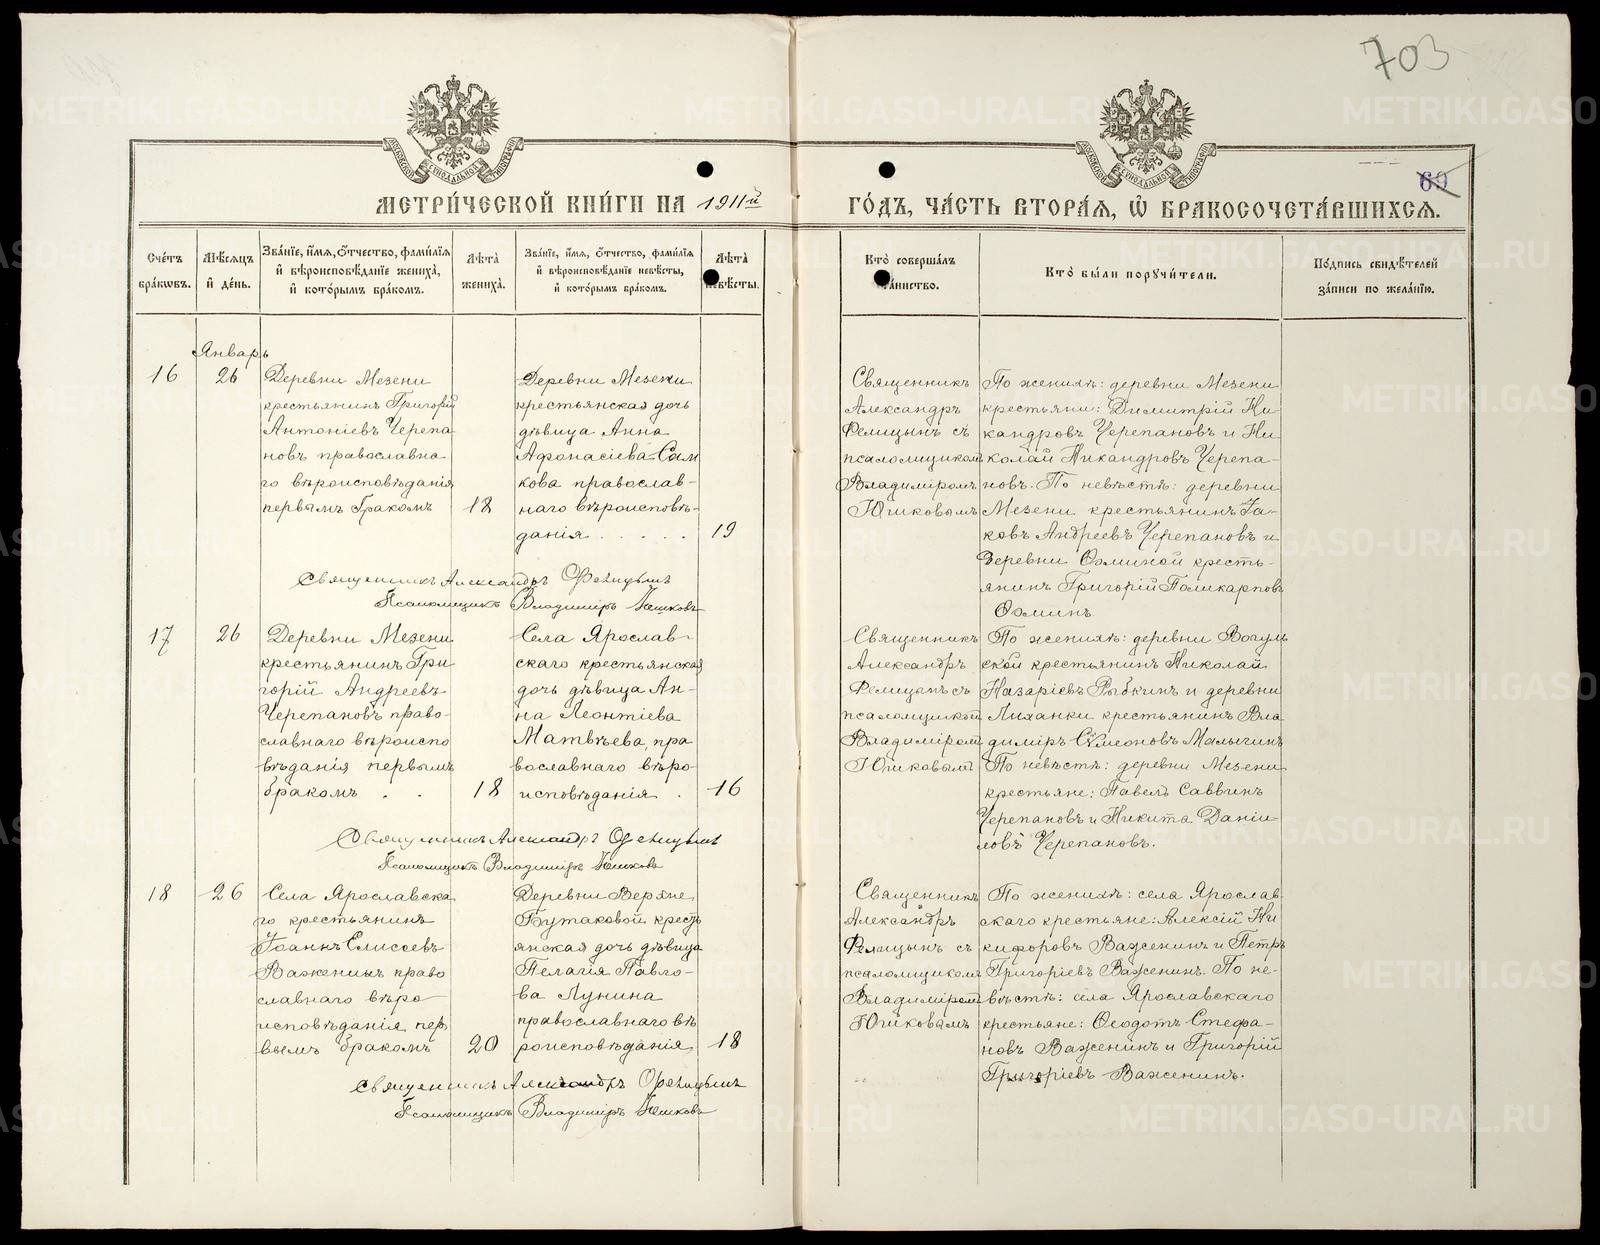 703
69
МЕТРИ́ЧЕСКОЙ КНИ́ГИ НА 1911й
ГО́ДЪ, ЧА́СТЬ ВТОРА́Я, Ѡ҆ БРАКОСОЧЕТА́ВШИХСЯ.
Сче́тъ бра́кωвъ.
Мѣ́сяцъ и҆ де́нь.
Зва́нїе, и҆́мя, ѻ҆́тчество, фами́лїя
и҆ вѣроисповѣ́данїе жениха̀,
и҆ кото́рымъ бра́комъ.
Лѣта̀ жениха̀.
Зва́нїе, и҆́мя, ѻ҆́тчество, фами́лїя
и҆ вѣроисповѣ́данїе невѣ́сты,
и҆ кото́рымъ бра́комъ.
Лѣта̀ невѣ́сты.
Кто̀ соверша́лъ та́инство.
Кто̀ бы́ли поручи́тели.
По́дпись свидѣ́телей
за́писи по жела́нїю.
Январь
16
26
Деревни Мезени
крестьянинъ Григорій
Антоніевъ Черепа
новъ православна
го вѣроисповѣданія
первымъ бракомъ
18
Деревни Мезени
крестьянская дочь
дѣвица Анна
Афонасіева Сам
кова православ-
наго вѣроисповѣ-
данія . . . . .
19
Священникъ
Александръ
Фелицынъ съ
псаломщикомъ
Владиміромъ
Юшковымъ
По женихѣ: деревни Мезени
крестьяни: Димитрій Ни
кандровъ Черепановъ и Ни
колай Никандровъ Черепа-
новъ. По невѣстѣ: деревни
Мезени крестьянинъ Іа-
ковъ Андреевъ Черепановъ и
деревни Ѳоминой кресть-
янинъ Григорій Поликарповъ
Ѳоминъ.
Священникъ Александръ Фелицынъ
Псаломщикъ Владиміръ Юшковъ
17
26
Деревни Мезени
крестьянинъ Гри
горій Андреевъ
Черепановъ право-
славнаго вѣроиспо
вѣданія первымъ
бракомъ . .
18
Села Ярослав-
скаго крестьянская
дочь дѣвица Ан-
на Леонтіева
Матвѣева, пра
вославнаго вѣро-
исповѣданія .
16
Священникъ
Александръ
Фелицынъ съ
псаломщикомъ
Владиміромъ
Юшковымъ
По женихѣ: деревни Вогуль
ской крестьянинъ Николай
Назаріевъ Рыбкинъ и деревни
Лиханки крестьянинъ Вла
димиръ Сѷмеоновъ Малыгинъ
По невѣстѣ: деревни Мезени
крестьяне: Павелъ Саввинъ
Черепановъ и Никита Даніи
ловъ Черепановъ.
Священникъ Александръ Фелицынъ
Псаломщикъ Владиміръ Юшковъ
18
26
Села Ярославска
го крестьянинъ
Іоаннъ Елисеевъ
Важенинъ право
славнаго вѣро-
исповѣданія пер
вымъ бракомъ
20
Деревни Верхне
Бутаковой кресть
янская дочь дѣвица
Пелагія Павло-
ва Лунина
православнаго вѣ
роисповѣданія
18
Священникъ
Александръ
Фелицынъ съ
псаломщикомъ
Владиміромъ
Юшковымъ
По женихѣ: села Ярослав
скаго крестьяне: Алексій Ни
кифоровъ Важенинъ и Петръ
Григоріевъ Важенинъ. По не-
вѣстѣ: села Ярославскаго
крестьяне: Ѳеодотъ Стефа-
новъ Важенинъ и Григорій
Григоріевъ Важенинъ.
Священникъ Александръ Фелицынъ
Псаломщикъ Владиміръ Юшковъ
METRIKI.GASO-URAL.RU